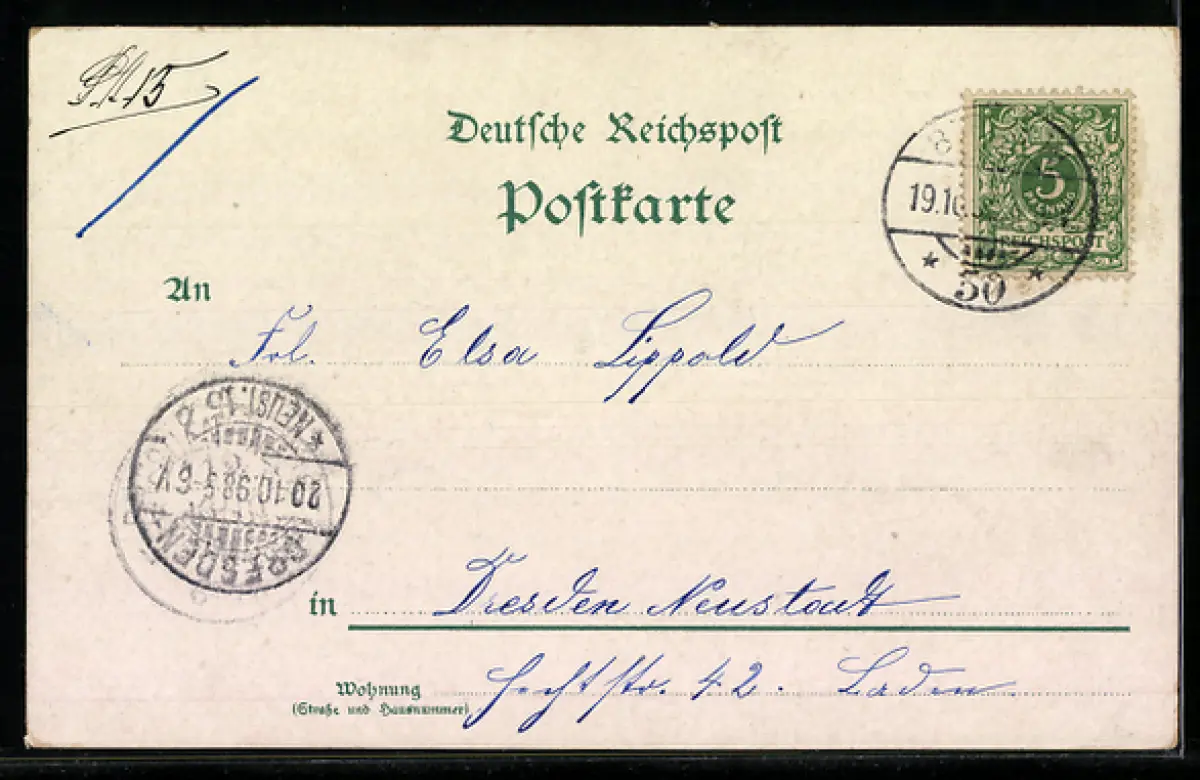 Deutsche Reichspost
Postkarte
5
PFENNIG
REICHSPOST
19.10.
50
An
Frl. Elsa Lippold
NEUST.
20.10.98 5-6V
DRESDEN-
in Dresden Neustadt
Wohnung Hechtstr. 42. Laden.
(Straße und Hausnummer)